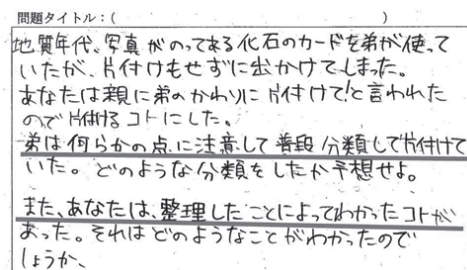 問題タイトル:( )
地質年代、写真がのってある化石のカードを弟が使って
いたが、片付けもせずに出かけてしまった。
あなたは親に弟のかわりに片付けて!と言われた
ので片付けるコトにした。
弟は何らかの点に注意して普段分類して片付けて
いた。どのような分類をしたか予想せよ。
また、あなたは、整理したことによってわかったコトが
あった。それはどのようなことがわかったので
しょうか、